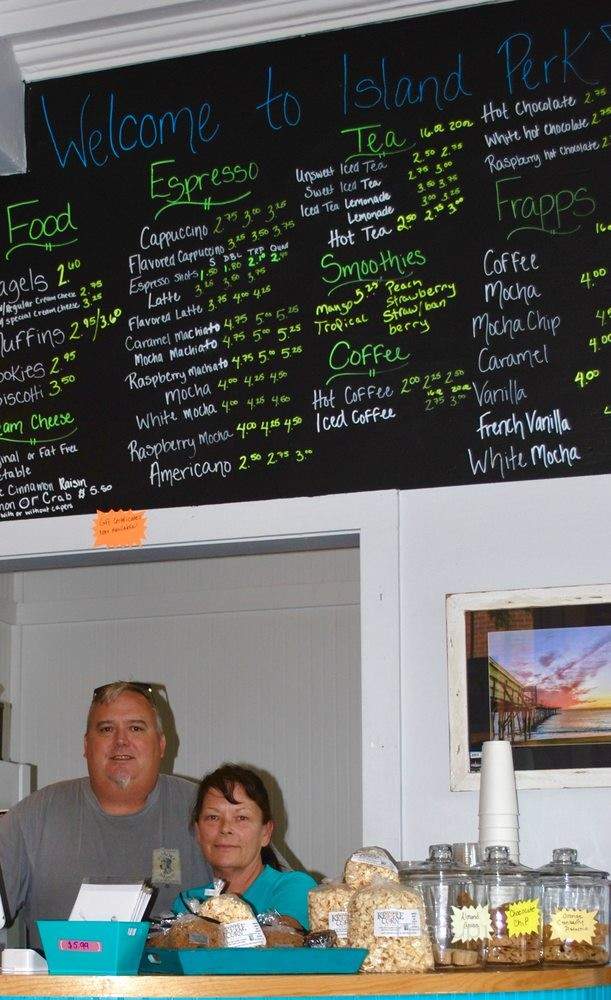 Welcome to Island Perk
Food
agels 2.60
w/Regular Cream Cheese 2.75
special Cream Cheese 3.25
uffins 2.95/3.60
ookies 2.95
iscotti 3.50
eam Cheese
ginal or Fat Free
etable
Cinnamon Raisin
mon or Crab $5.50
with or without capers
Espresso
Cappuccino 2.75 3.00 3.25
Flavored Cappuccino 3.25 3.50 3.75
S DBL TRP Quad
Espresso Shots 1.50 1.80 2.10
Latte 3.25 3.50 3.75
Flavored Latte 3.75 4.00 4.25
Caramel Machiato 4.75 5.00 5.25
Mocha Machiato 4.75 5.00 5.25
Raspberry Machiato 4.75 5.00 5.25
Mocha 4.00 4.25 4.50
White Mocha 4.00 4.25 4.50
Raspberry Mocha 4.00 4.25 4.50
Americano 2.50 2.75 3.00
Tea 16oz 20oz
Unsweet Iced Tea 2.50 2.75
Sweet Iced Tea 2.75 3.00
Iced Tea Lemonade 3.50 3.75
Lemonade 3.00 3.25
Hot Tea 2.50 2.75 3.00
Smoothies
Mango 5.25 Peach
Tropical Strawberry
Straw/ban
berry
Coffee
Hot Coffee 2.00 2.25 2.50
16oz 20oz
Iced Coffee 2.75 3.00
Hot Chocolate 2.75
White hot Chocolate 2.75
Raspberry Hot Chocolate 2
Frapps
16
Coffee
Mocha 4.00
Mocha Chip 4
Caramel 4.00
Vanilla 4.00
French Vanilla
White Mocha
Gift Certificates
Now Available!
$5.99
KETTLE
CORN
KETTLE
CORN
Almond
Chocolate
Chip
Orange
Cranberry
Pistachio